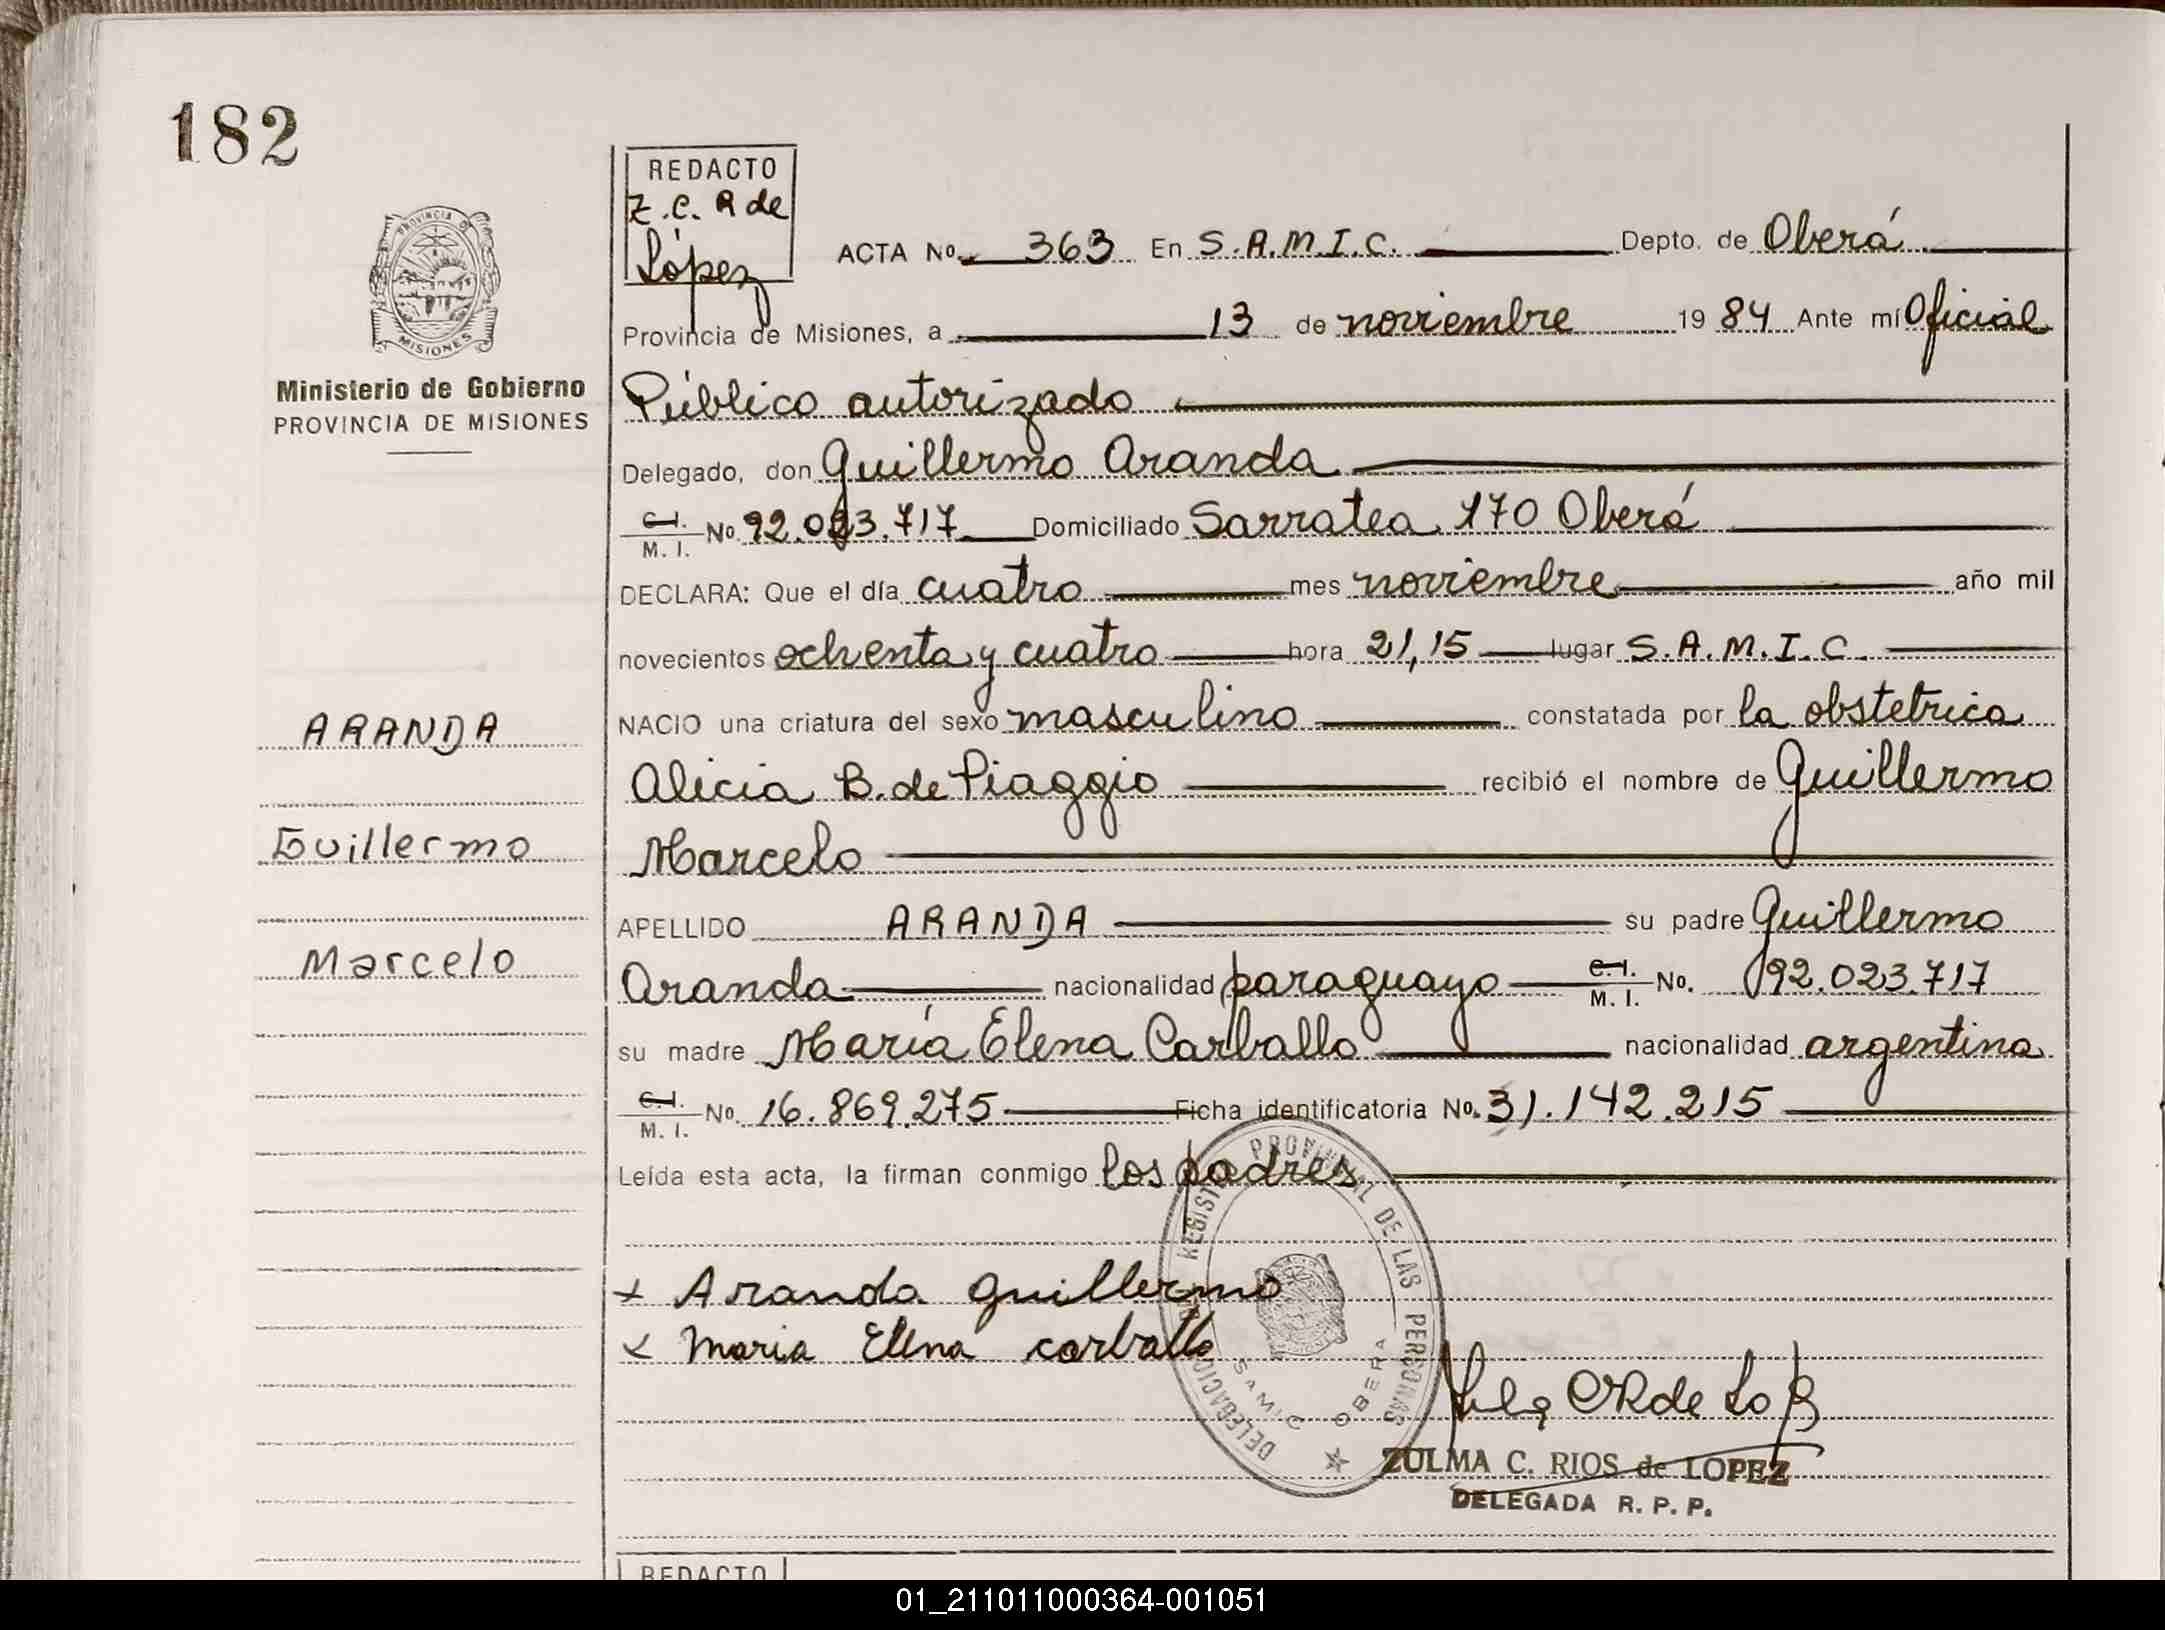 182
REDACTO
Z.C. R de
López
PROVINCIA DE
MISIONES
Ministerio de Gobierno
PROVINCIA DE MISIONES
ACTA No. 363 En S.A.M.I.C. Depto. de Oberá
Provincia de Misiones, a 13 de noviembre 1984 Ante mí Oficial
Público autorizado
Delegado, don Guillermo Aranda
C.I. M.I. No. 92.023.717 Domiciliado Sarratea 170 Oberá
DECLARA: Que el día cuatro mes noviembre año mil
novecientos ochenta y cuatro hora 21,15 lugar S.A.M.I.C
NACIO una criatura del sexo masculino constatada por la obstetrica
Alicia B. de Piaggio recibió el nombre de Guillermo
Marcelo
APELLIDO ARANDA su padre Guillermo
Aranda nacionalidad paraguayo C.I. M.I. No. 92.023.717
su madre María Elena Carballo nacionalidad argentina
C.I. M.I. No. 16.869.275 Ficha identificatoria No. 31.142.215
Leída esta acta, la firman conmigo los padres
ARANDA
Guillermo
Marcelo
+ Aranda Guillermo
x Maria Elena carballo
REGISTRO PROVINCIAL DE LAS PERSONAS
DELEGACION
SAMIC OBERA
ZULMA C. RIOS de LOPEZ
DELEGADA R. P. P.
REDACTO
01_211011000364-001051